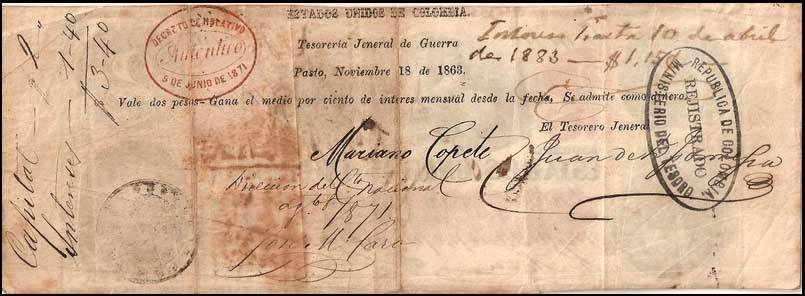 ESTADOS UNIDOS DE COLOMBIA.
Tesorería Jeneral de Guerra
Pasto, Noviembre 18 de 1863.
Vale dos pesos—Gana el medio por ciento de interes mensual desde la fecha. Se admite como dinero.
El Tesorero Jeneral
Mariano Copete
Juan de
DECRETO EJECUTIVO
Auténtico
5 DE JUNIO DE 1871
Intereses hasta 10 de abril
de 1883 — $ 1,15
REPUBLICA DE COLOMBIA
REJISTRADO
MINISTERIO DEL TESORO
Capital — $ 2"
Intereses — 1-40
$ 3-40
Direccion del Cto nacional
agto 1871
Jose M Caro